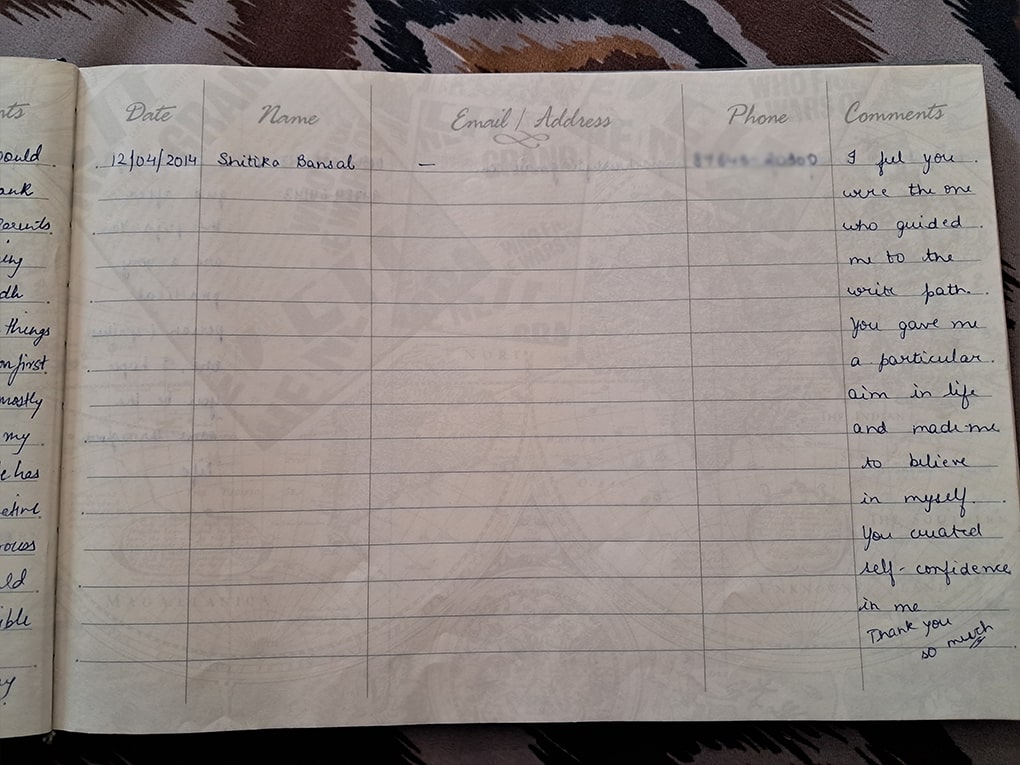 nts
Date Name Email / Address Phone Comments
ould
12/04/2014 Shitika Bansal – I feel you
ank
were the one
Parents
who guided
ing
me to the
dh
write path.
things
You gave me
on first
a particular
mostly
aim in life
my
and made me
e has
to believe
in myself.
You created
ld
self-confidence
MAGALLANICA
ible
in me
Thank you
so much
y